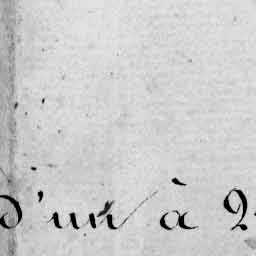 d'un à 2